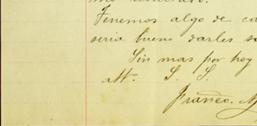 Tenemos algo de ca
seria bueno darles
Sin mas por hoy
att. S. S.
Franco.